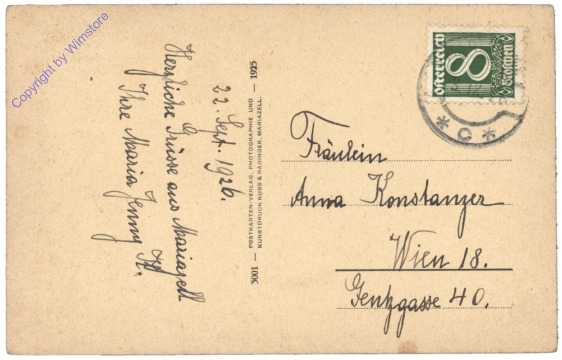 Copyright by Wimstore
22. Sept. 1926.
Herzliche Grüsse aus Mariazell
Ihre Maria Jenny
5001 — POSTKARTEN-VERLAG, PHOTOGRAPHIE UND — 1925
KUNSTDRUCK KUSS & HADINGER, MARIAZELL.
Österreich
8
Groschen
* C *
Fräulein
Anna Konstanzer
Wien 18.
Gentzgasse 40.